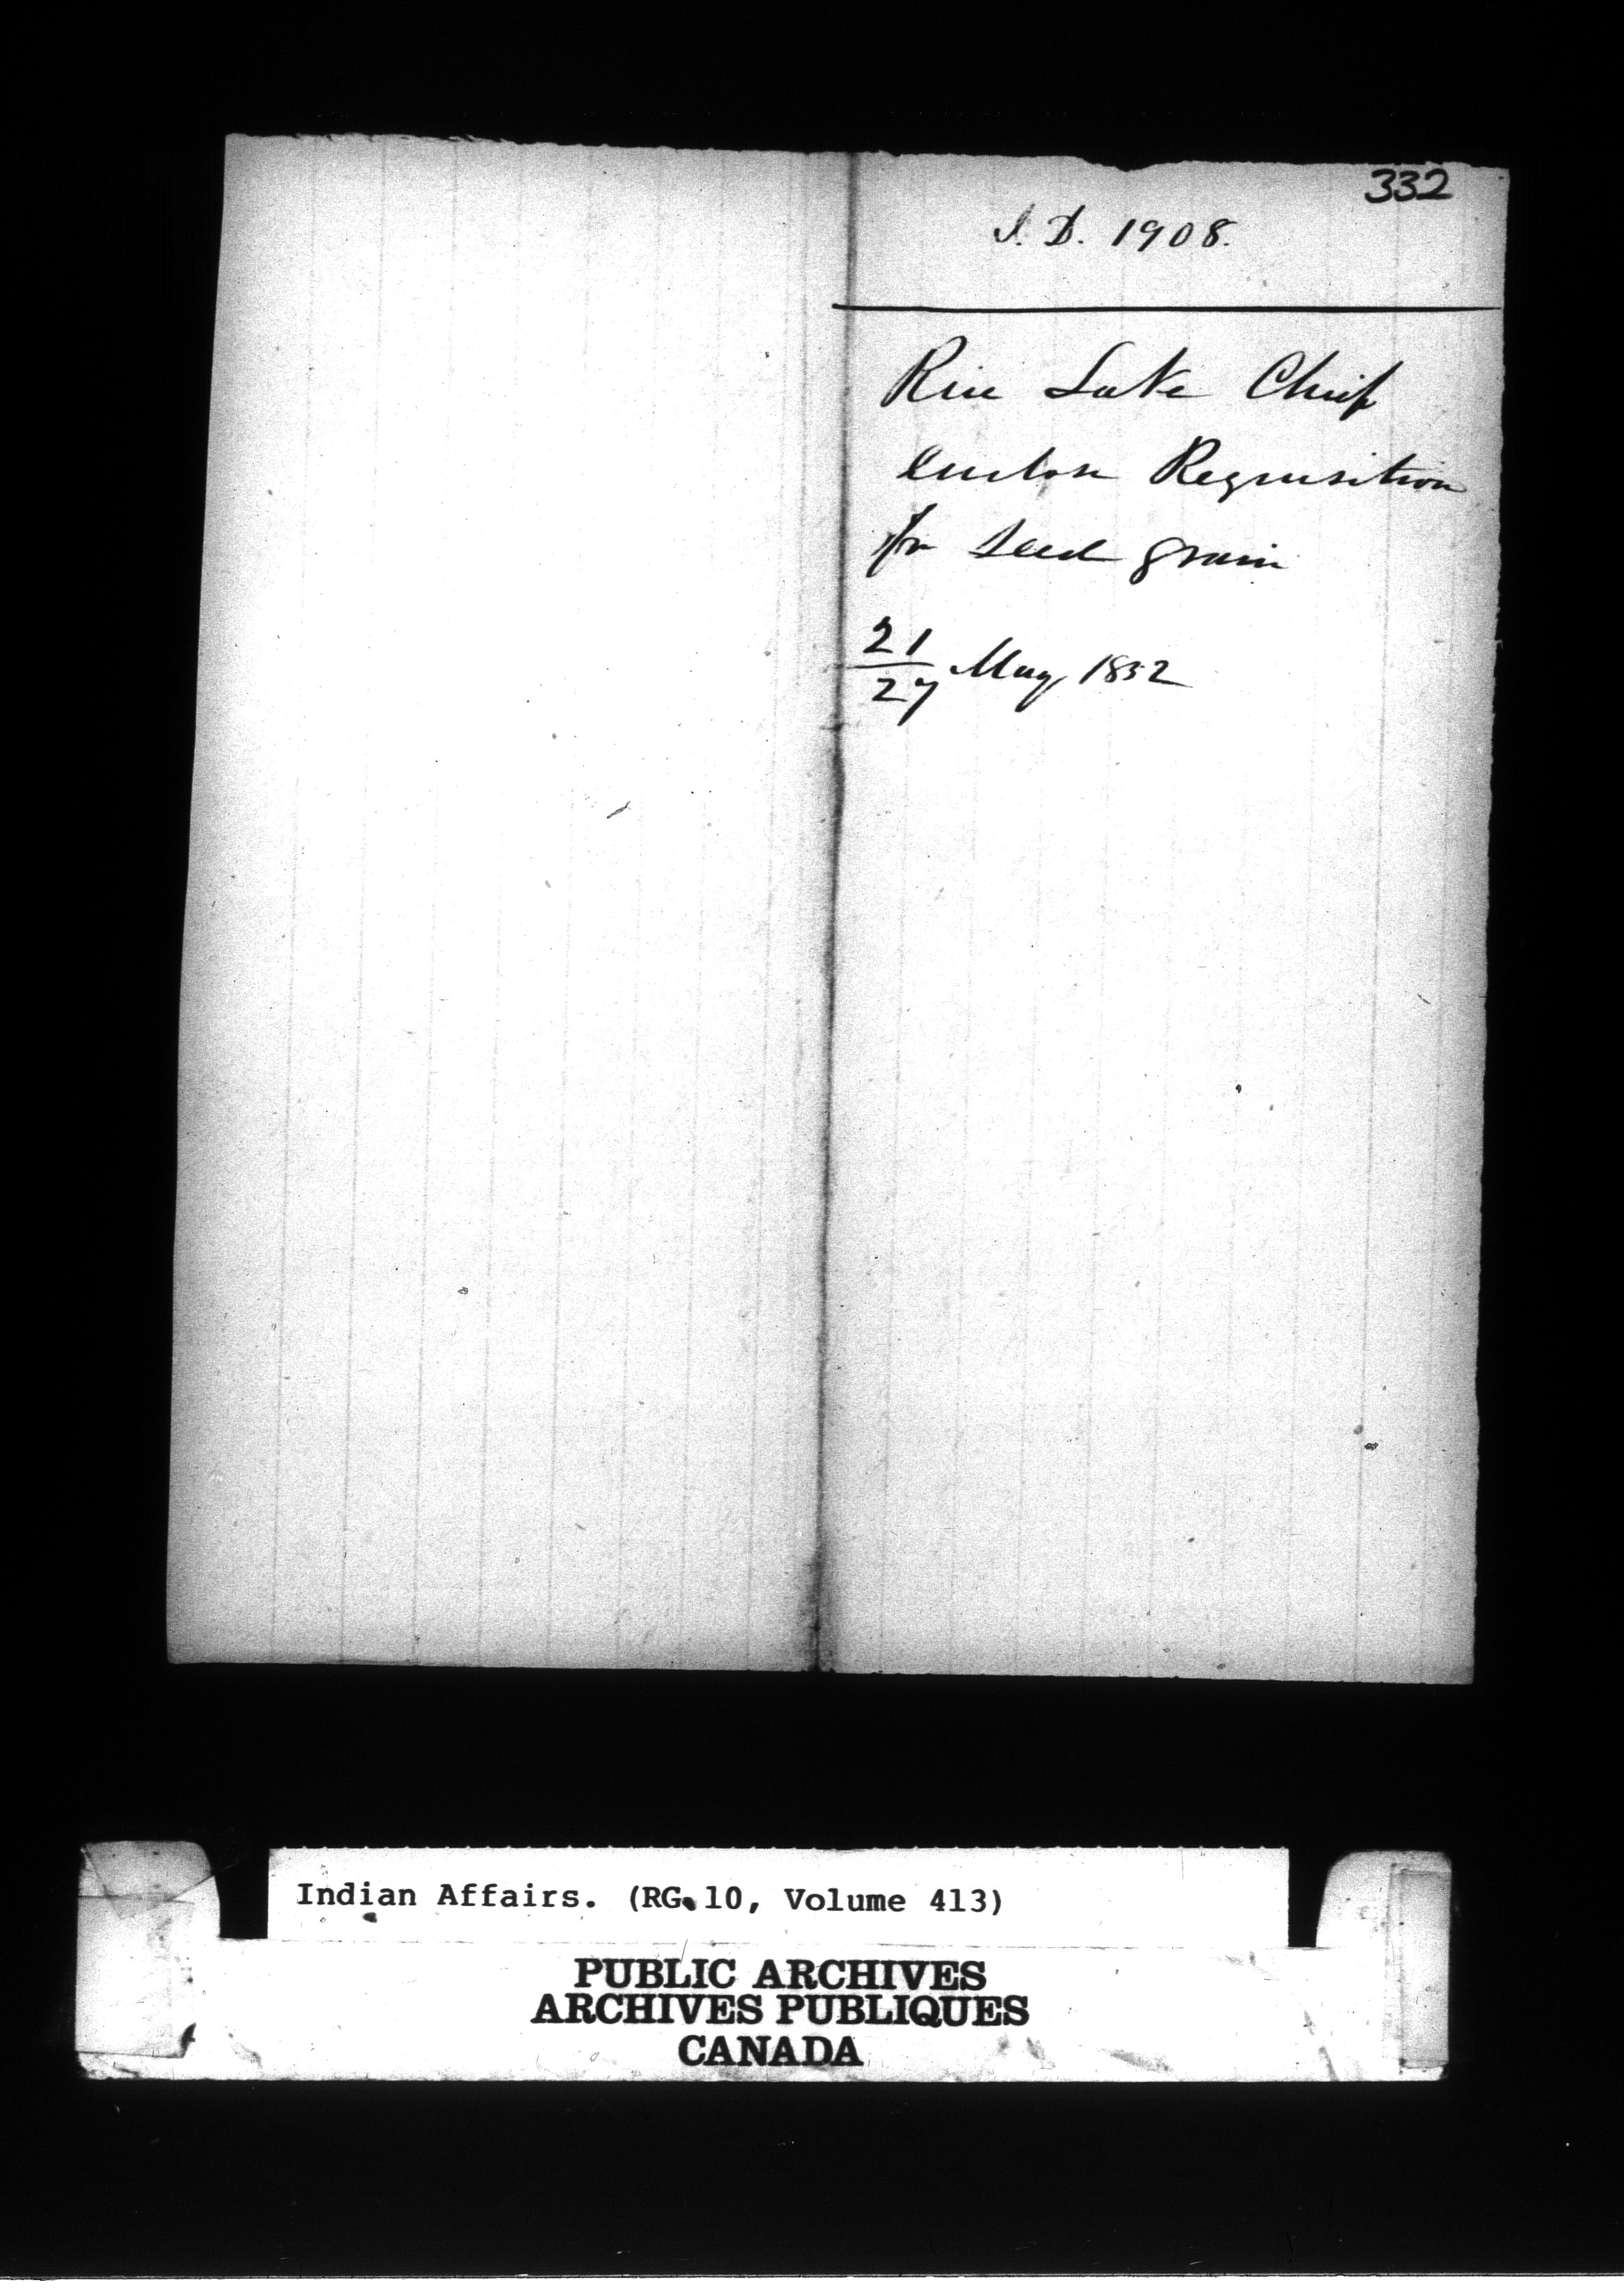 332
I. D. 1908.
Rice Lake Chief
enclose Requisition
for seed grain
21/27 May 1852
Indian Affairs. (RG.10, Volume 413)
PUBLIC ARCHIVES
ARCHIVES PUBLIQUES
CANADA